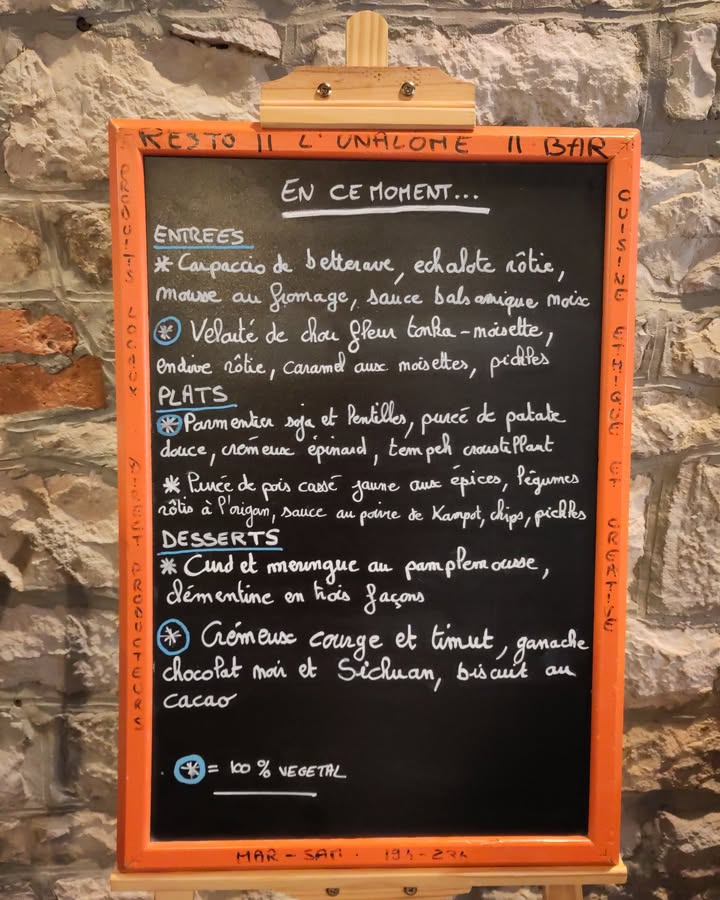 RESTO || L'UNALOME || BAR
PRODUITS LOCAUX DIRECT PRODUCTEURS
EN CE MOMENT...
ENTREES
* Carpaccio de betterave, echalote rôtie,
mousse au fromage, sauce balsamique noix
* Velouté de chou fleur tonka-noisette,
endive rôtie, caramel aux noisettes, pickles
PLATS
* Parmentier soja et lentilles, purée de patate
douce, crémeux épinard, tempeh croustillant
* Purée de pois cassé jaune aux épices, légumes
rôtis à l'origan, sauce au poivre de Kampot, chips, pickles
DESSERTS
* Curd et meringue au pamplemousse,
clémentine en trois façons
* Crémeux courge et timut, ganache
chocolat noir et Sichuan, biscuit au
cacao
* = 100 % VEGETAL
CUISINE ETHIQUE ET CREATIVE
MAR - SAM . 19h - 23h